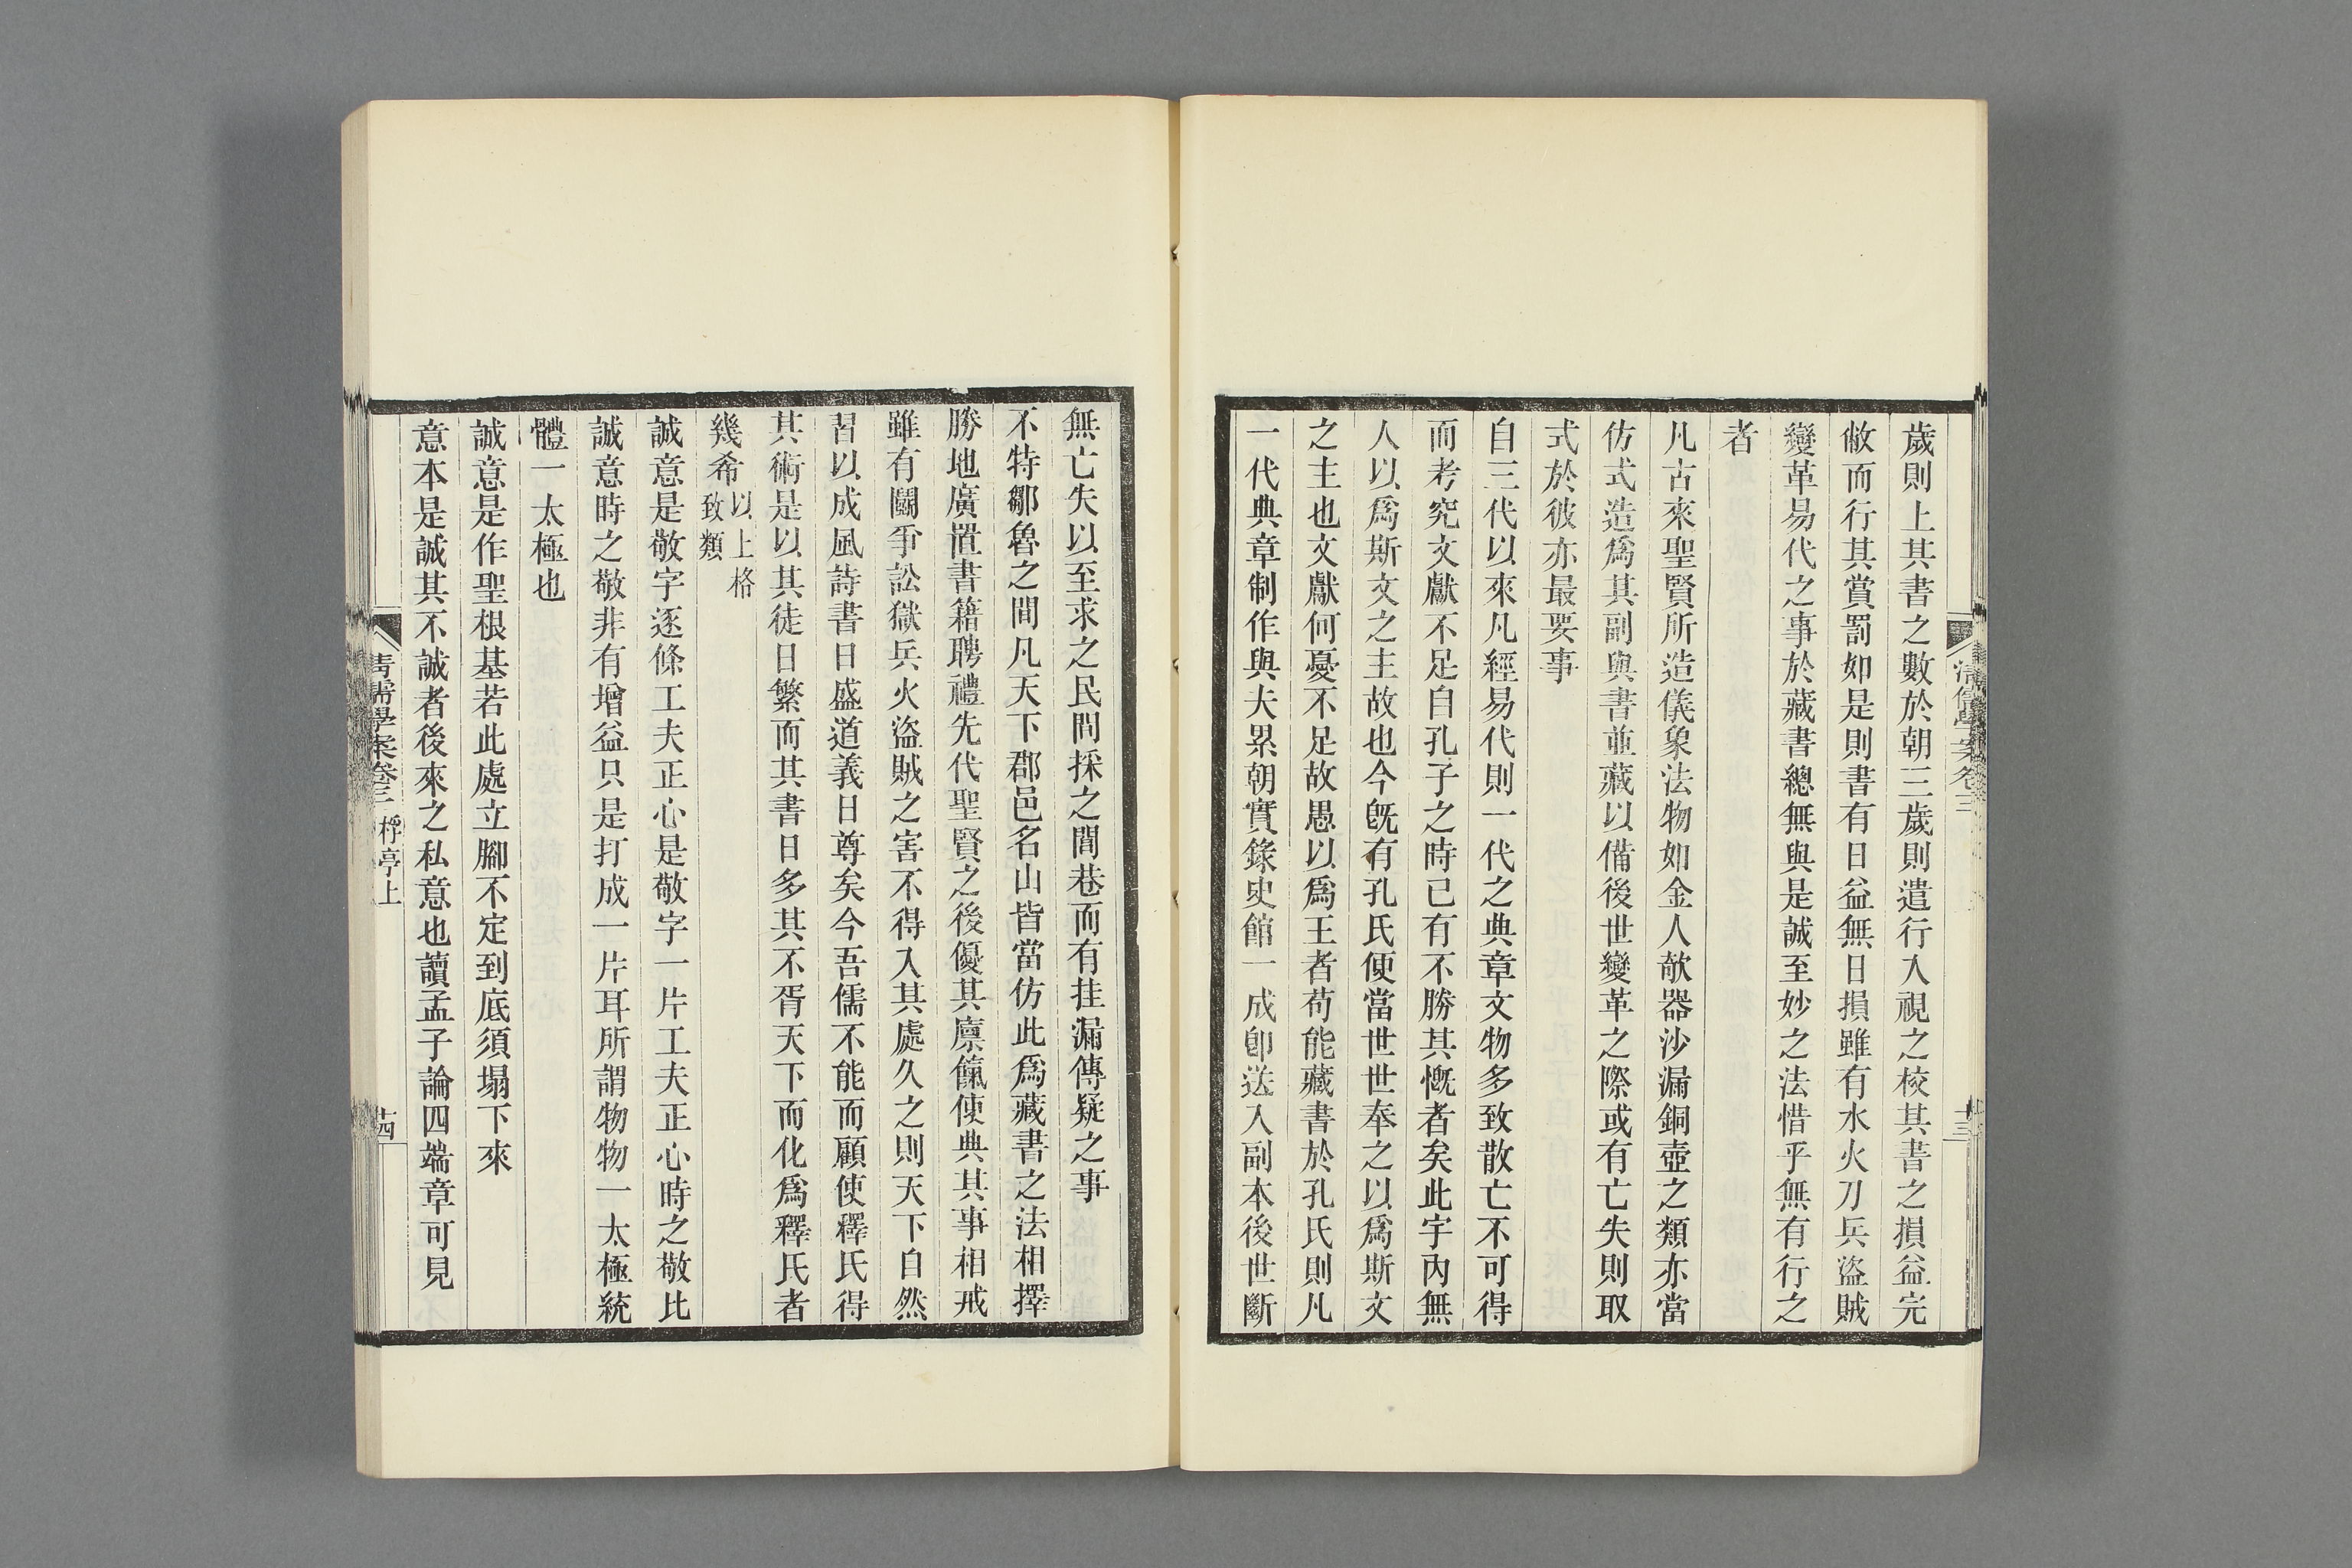 清儒學案卷三
十三
歲則上其書之數於朝三歲則遣行人視之校其書之損益完
敝而行其賞罰如是則書有日益無日損雖有水火刀兵盜賊
變革易代之事於藏書總無與是誠至妙之法惜乎無有行之
者
凡古來聖賢所造儀象法物如金人欹器沙漏銅壺之類亦當
仿式造爲其副與書並藏以備後世變革之際或有亡失則取
式於彼亦最要事
自三代以來凡經易代則一代之典章文物多致散亡不可得
而考究文獻不足自孔子之時已有不勝其慨者矣此宇內無
人以爲斯文之主故也今旣有孔氏便當世世奉之以爲斯文
之主也文獻何憂不足故愚以爲王者苟能藏書於孔氏則凡
一代典章制作與夫累朝實錄史館一成卽送入副本後世斷
無亡失以至求之民間採之閭巷而有挂漏傳疑之事
不特鄒魯之間凡天下郡邑名山皆當仿此爲藏書之法相擇
勝地廣置書籍聘禮先代聖賢之後優其廩餼使典其事相戒
雖有鬭爭訟獄兵火盜賊之害不得入其處久之則天下自然
習以成風詩書日盛道義日尊矣今吾儒不能而顧使釋氏得
其術是以其徒日繁而其書日多其不胥天下而化爲釋氏者
幾希以上格
致類
誠意是敬字逐條工夫正心是敬字一片工夫正心時之敬比
誠意時之敬非有增益只是打成一片耳所謂物物一太極統
體一太極也
誠意是作聖根基若此處立腳不定到底須塌下來
意本是誠其不誠者後來之私意也讀孟子論四端章可見
清儒學案卷三 桴亭上
十四